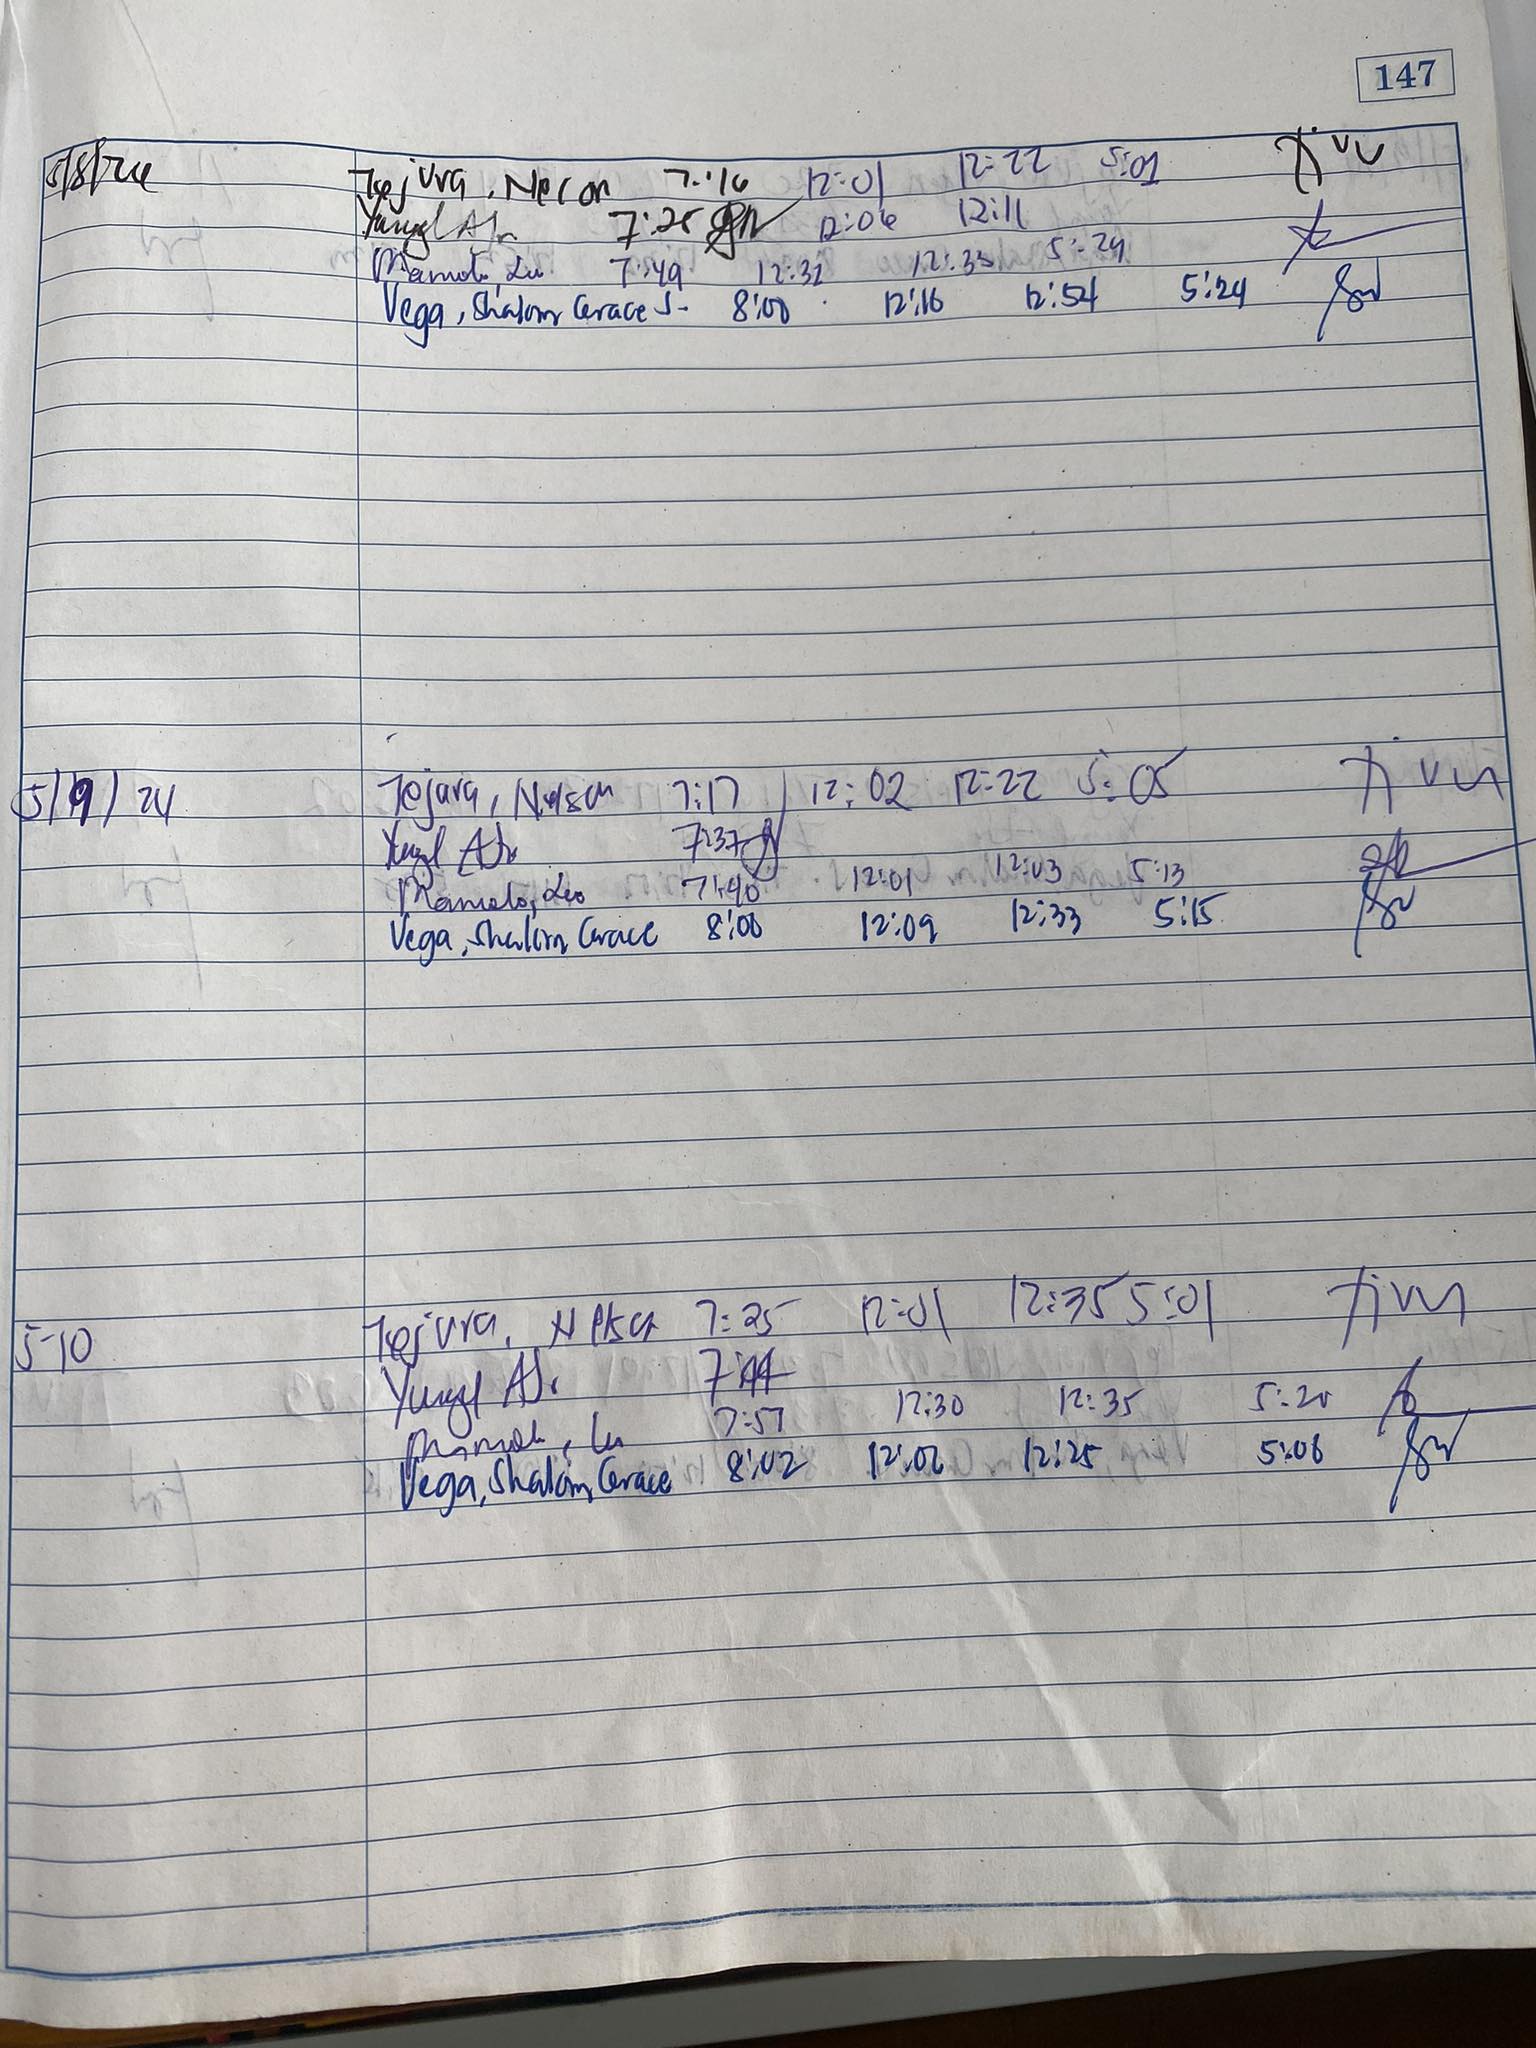 147
5/8/24 Tejura, Nelson 7:16 12:01 12:22 5:01
7:25 12:06 12:11
Mamolo, Leo 7:49 12:32 12:33 5:24
Vega, Shalom Grace S. 8:00 12:16 12:54 5:24
5/9/24 Tejura, Nelson 7:17 12:02 12:22 5:05
7:37
Mamolo, Leo 7:40 12:01 12:03 5:13
Vega, Shalom Grace 8:00 12:09 12:33 5:15
5-10 Tejura, Nelson 7:25 12:01 12:35 5:01
7:44
Mamolo, Leo 7:57 12:30 12:35 5:20
Vega, Shalom Grace 8:02 12:02 12:25 5:06